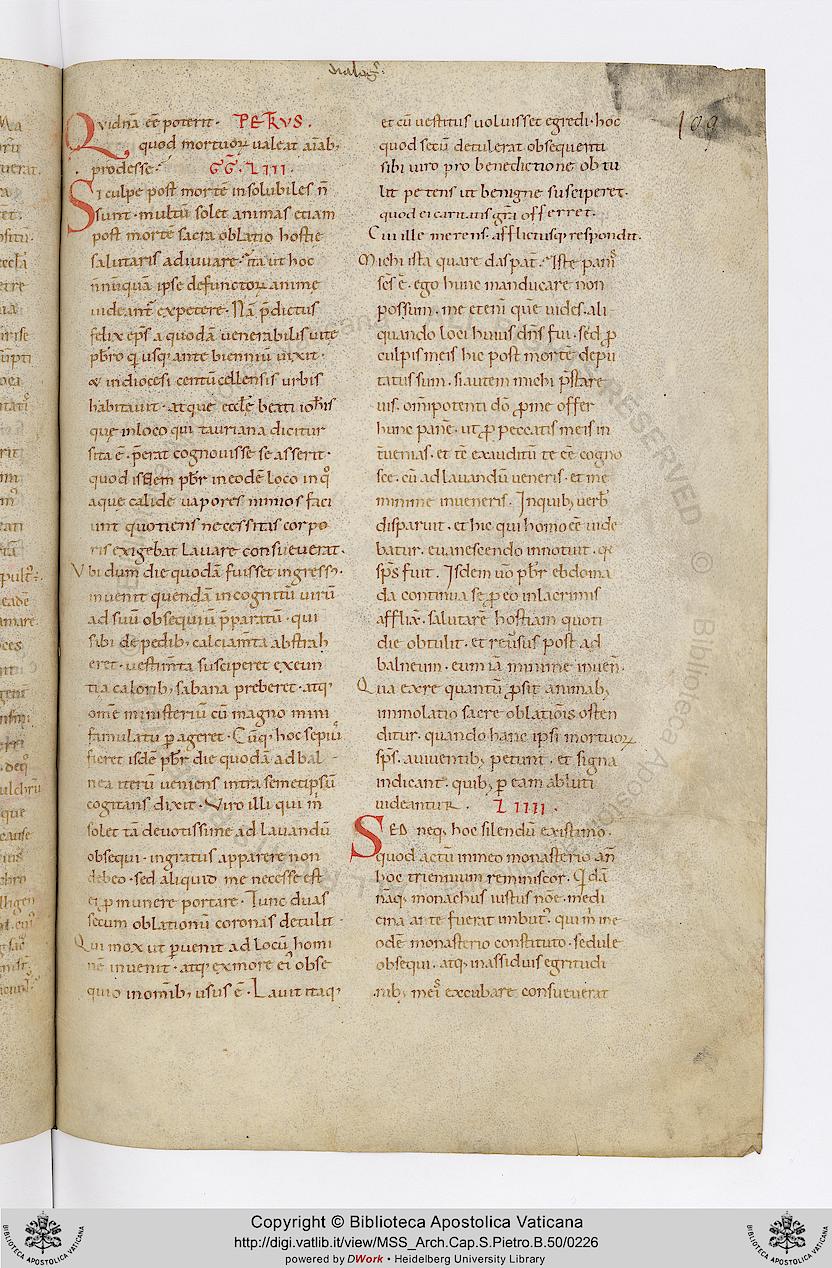 dialogꝰ.
109
Quidnā eē poterit. PETRVS.
quod mortuoꝝ ualeat aīab;
prodesse. GG̅. LIII.
Si culpe post mortē insolubiles ñ
sunt. multū solet animas etiam
post mortē sacra oblatio hostie
salutaris adiuuare. ita ut hoc
nūnquā ipse defunctorū anime
uideant̄ expetere. Nā p̄dictus
felix ep̄s a quodā uenerabilis uite
pb̄ro qui usq; ante bienniū uixit.
& in diocesi centūcellensis urbis
habitauit. atque eccłe beati ioh̄is
que in loco qui tauriana dicitur
sita ē. p̄erat cognouisse se asserit.
quod isdem pb̄r in eodē loco in q̊
aque calide uapores nimios faci
unt quotiens necessitas corpo
ris exigebat lauare consueuerat.
Vbi dum die quodā fuisset ingressꝰ.
inuenit quendā incognitū uirū
ad suū obsequiū p̄paratū. qui
sibi de pedib; calciam̄ta abstrah
eret. uestim̄ta susciperet exeun
ti a calorib; sabana preberet. atq;
om̄e ministeriū cū magno mini
famulatu ꝑageret. Cūq; hoc sepiꝰ
fieret isdē pb̄r die quodā ad bal
nea iterū ueniens intra semetipsū
cogitans dixit. Viro illi qui m̄
solet tā deuotissime ad lauandū
obsequi. ingratus apparere non
debeo. sed aliquid me necesse est
ei ꝓ munere portare. Tunc duas
secum oblationū coronas detulit.
Qui mox ut ꝑuenit ad locū homi
nē inuenit. atq; ex more eiꝰ obse
quio in om̄ib; usus ē. Lauit itaq;
et cū uestitus uoluisset egredi. hoc
quod secū detulerat obsequenti
sibi uiro pro benedictione obtu
lit petens ut benigne susciperet.
quod ei caritatis gr̄a offerret.
Cui ille merens. afflictusq; respondit.
Michi ista quare das pat̄. Iste panis
sc̄s ē. ego hunc manducare non
possum. me etenī quē uides. ali
quando loci huius dn̄s fui. sed ꝓ
culpis meis hic post mortē depu
tatus sum. si autem michi p̄stare
uis. omīpotenti dō ꝓ me offer
hunc panē. ut ꝓ peccatis meis in
t̄uenias. et tē exauditū te eē cogno
sce. cū ad lauandū ueneris. et me
minime inueneris. In quib; uerb̄
disparuit. et hic qui homo eē uide
batur. euanescendo innotuit. qꝛ
sp̄s fuit. Isdem ūo pb̄r ebdoma
da continua se ꝓ eo in lacrimis
afflixit. salutarē hostiam quoti
die obtulit. et reu̅sus post ad
balneum. eum iā minime inuen̄.
Qua ex re quantū ꝓsit animab;
immolatio sacre oblatiōis osten
ditur. quando hanc ipsi mortuoꝝ
sp̄s. a uiuentib; petunt. et signa
indicant. quib; ꝑ eam absoluti
uideantur. LIIII.
SED neq; hoc silendū existimo.
quod actū in meo monasterio an̄
hoc triennium reminiscor. Qidā
nāq; monachus iustus nōe. medi
cina arte fuerat imbutꝰ. qui m̄ in e
odē monasterio constituto. sedule
obsequi. atq; in assiduis egritudi
nib; meis excubare consueuerat
Copyright © Biblioteca Apostolica Vaticana
http://digi.vatlib.it/view/MSS_Arch.Cap.S.Pietro.B.50/0226
powered by DWork • Heidelberg University Library